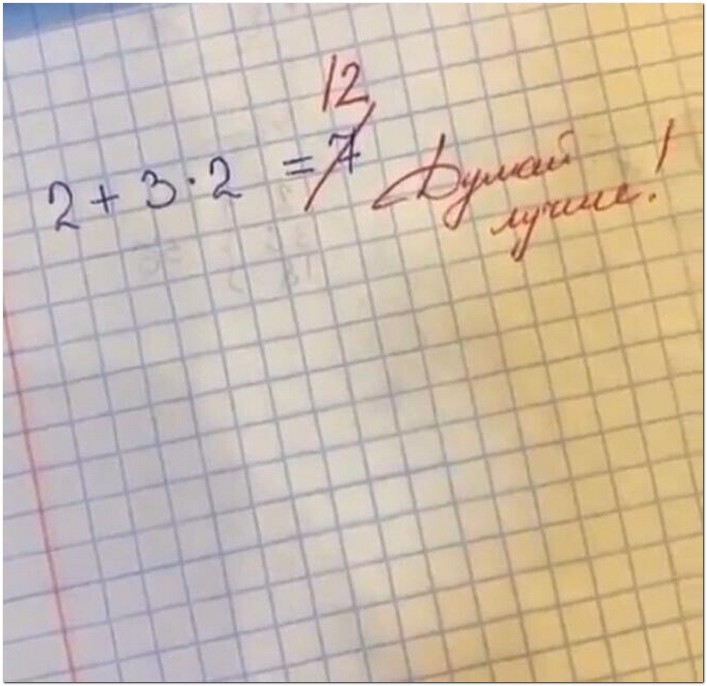 12
2 + 3 · 2 = 7 Думай
лучше!